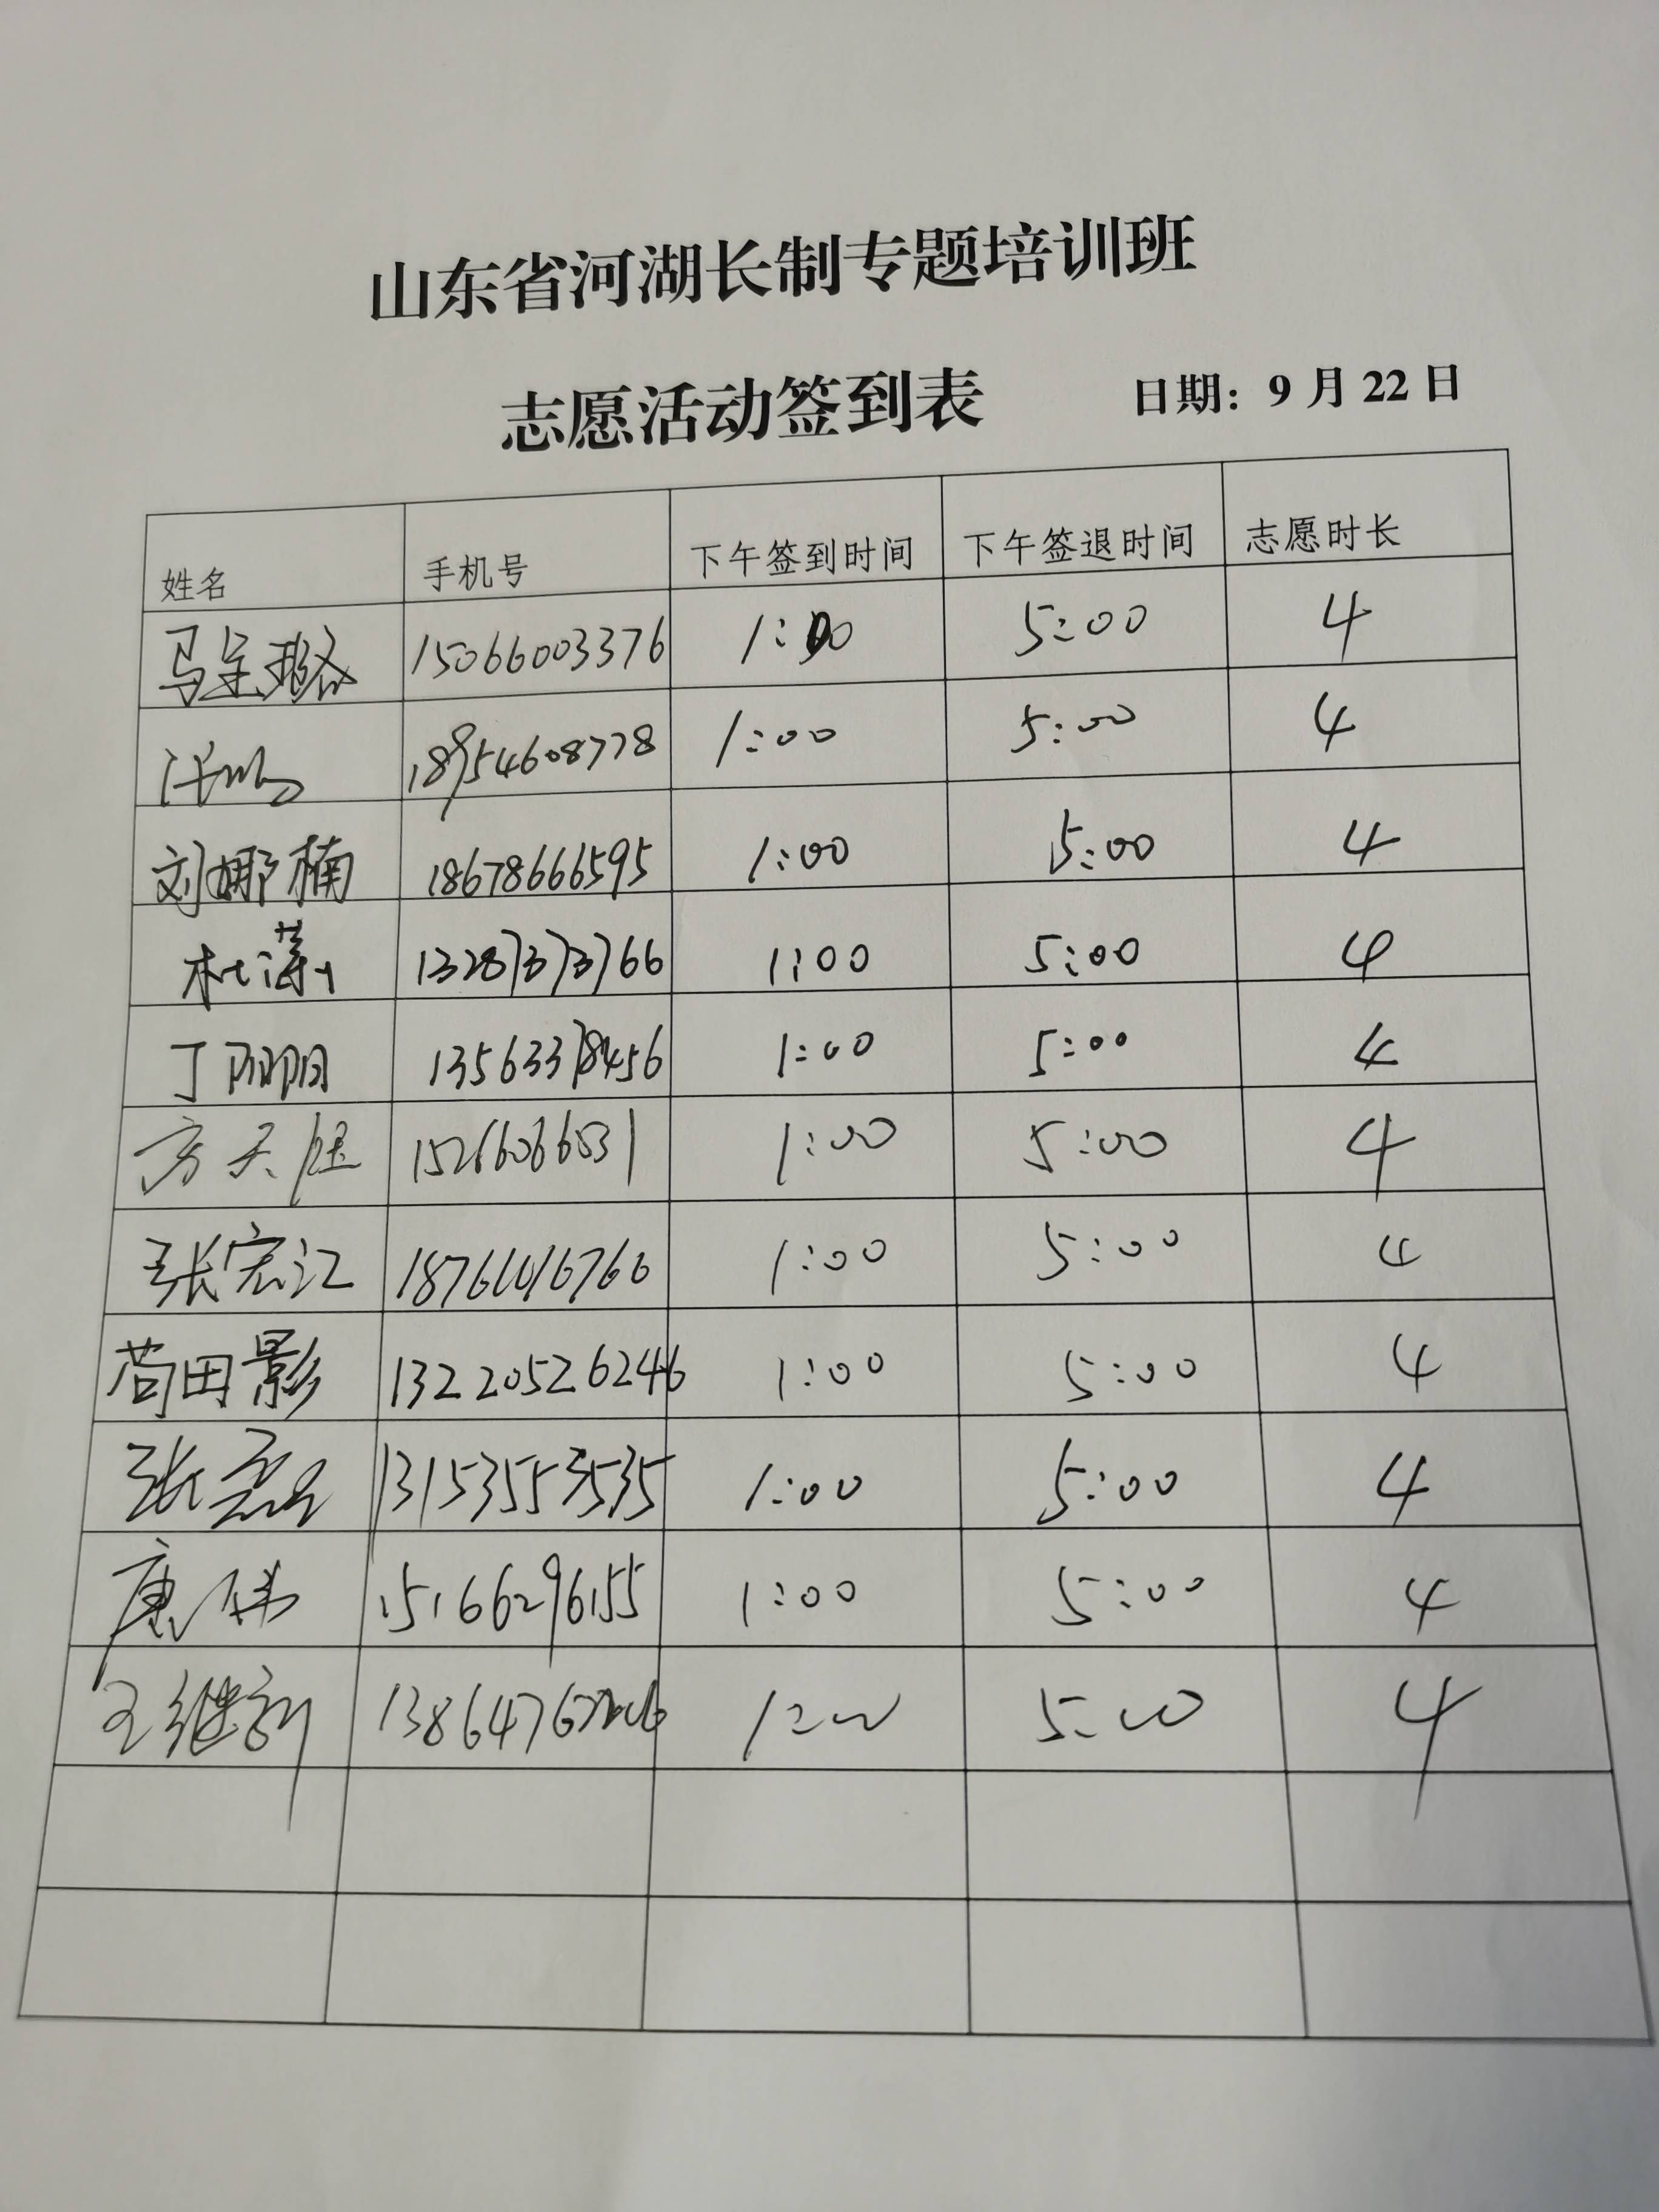 山东省河湖长制专题培训班
志愿活动签到表 日期：9月22日
姓名 手机号 下午签到时间 下午签退时间 志愿时长
15066003376 1:00 5:00 4
18954608778 1:00 5:00 4
刘娜楠 18678666595 1:00 5:00 4
杜 13287373766 1:00 5:00 4
丁 13563378456 1:00 5:00 4
方天 15216066031 1:00 5:00 4
张宏江 1:00 5:00 4
苟田影 13220526246 1:00 5:00 4
张 13153553535 1:00 5:00 4
康伟 15166296155 1:00 5:00 4
王继新 1:00 5:00 4